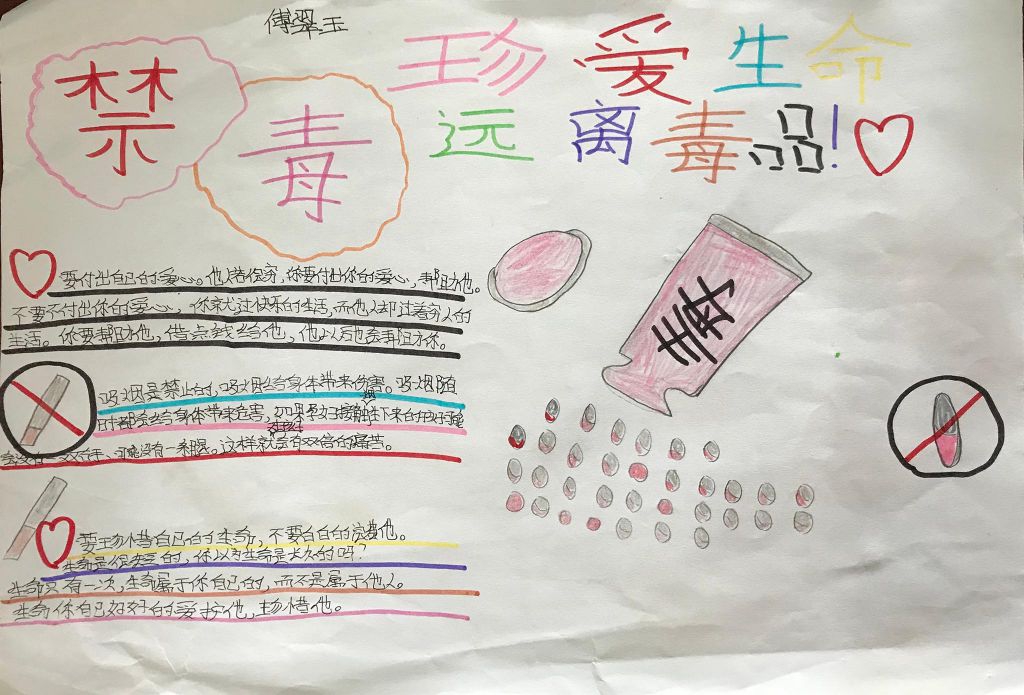 傅翠玉
禁毒
珍爱生命
远离毒品!
毒
要付出自己的爱心。他人若很穷,你要付出你的爱心,帮助他。
不要不付出你的爱心,你就过快乐的生活,而他人却过着穷人的
生活。你要帮助他,借点钱给他,他以后也会帮助你。
吸烟是禁止的,吸烟给身体带来伤害。吸烟随
时都会给身体带来危害,如果孕妇接触生下来的
没有一双手、可能没有一条腿。这样就会有双倍的痛苦。
要珍惜自己的生命,不要白白的浪费他。
生命是很宝贵的,你以为生命是永久的吗?
生命只有一次,生命属于你自己的,而不是属于他人。
生命你自己好好的爱护他,珍惜他。